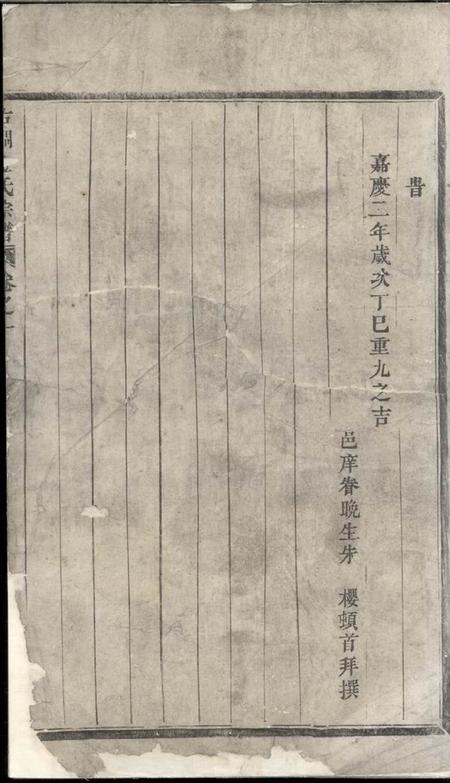 旹
嘉慶二年歲次丁巳重九之吉
邑庠眷晚生朱　櫻頓首拜撰
氏宗譜 卷之一